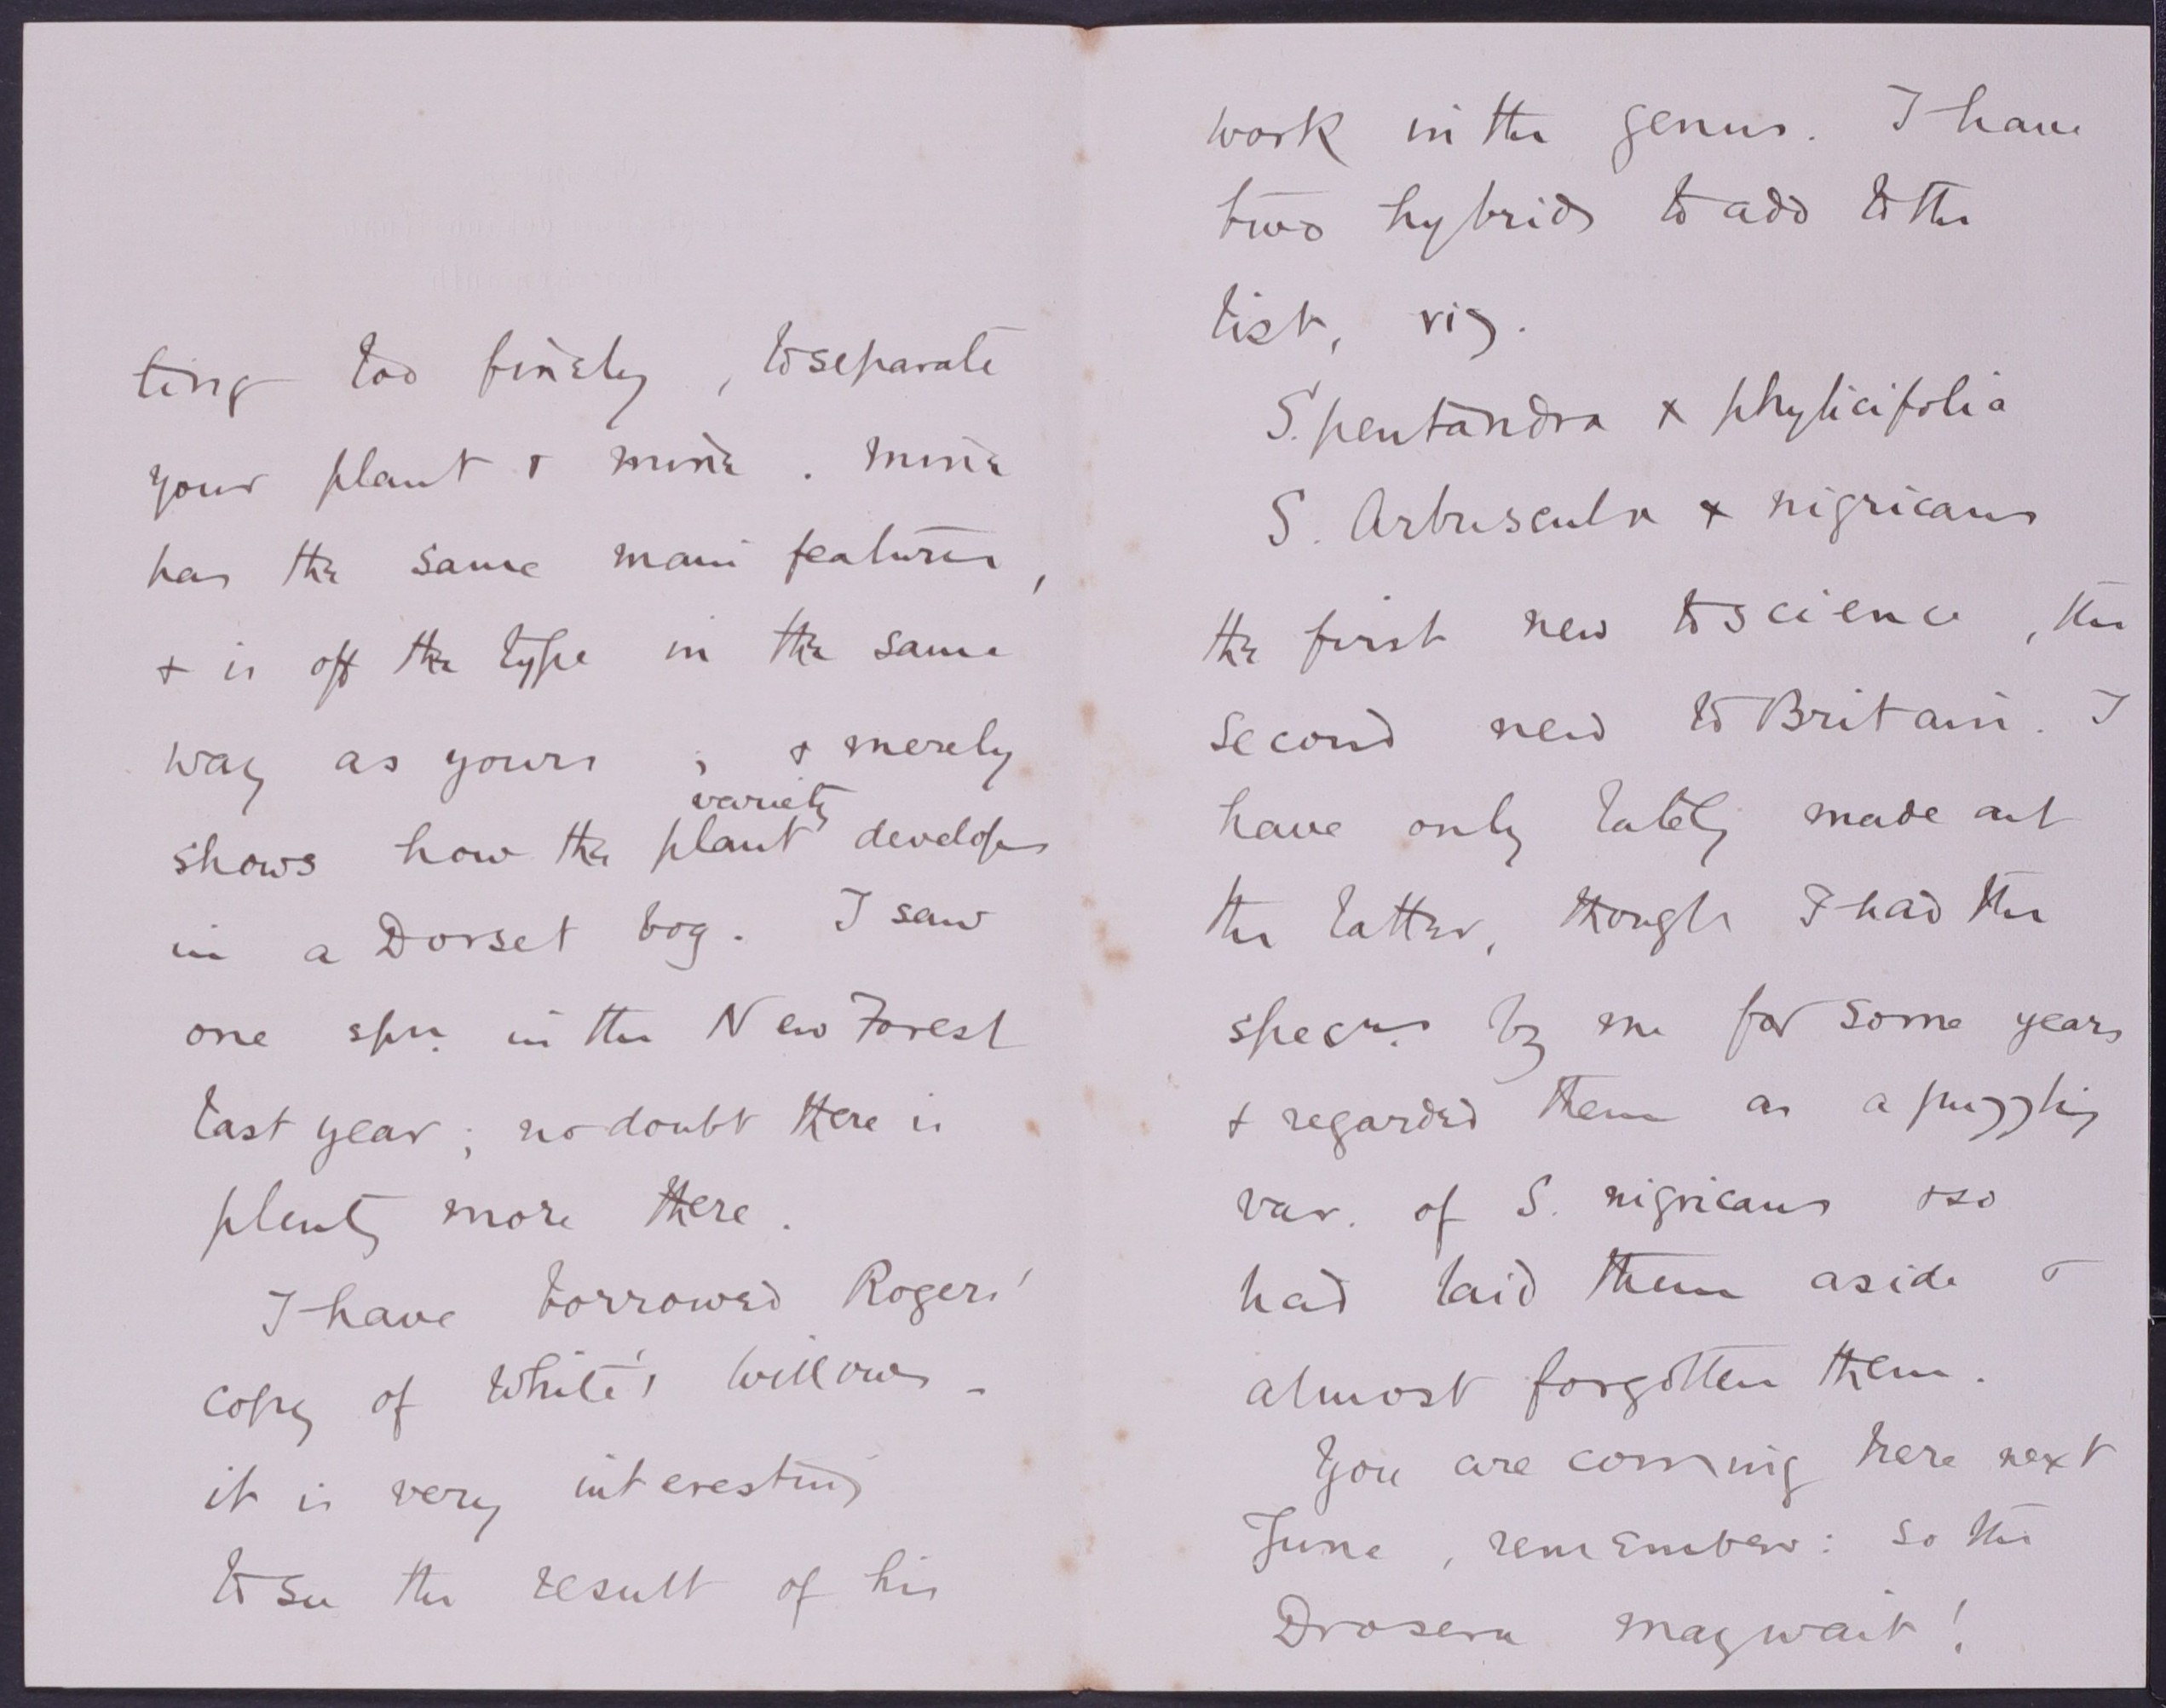 ting too finely, to separate
your plant & mine. Mine
has the same main features,
& is off the type in the same
way as yours; & merely
variety
shows how the plant develops
in a Dorset bog. I saw
one spn. in the New Forest
last year; no doubt there is
plenty more there.
I have borrowed Rogers'
copy of White's Willows -
it is very interesting
to see the result of his
work in the genus. I have
two hybrids to add to the
list, viz.
S. pentandra x phylicifolia
S. Arbuscula x nigricans
the first new to science, the
second new to Britain. I
have only lately made out
the latter, though I had the
specms. by me for some years
& regarded them as a puzzling
var. of S. nigricans & so
had laid them aside &
almost forgotten them.
You are coming here next
June, remember: so the
Drosera may wait!